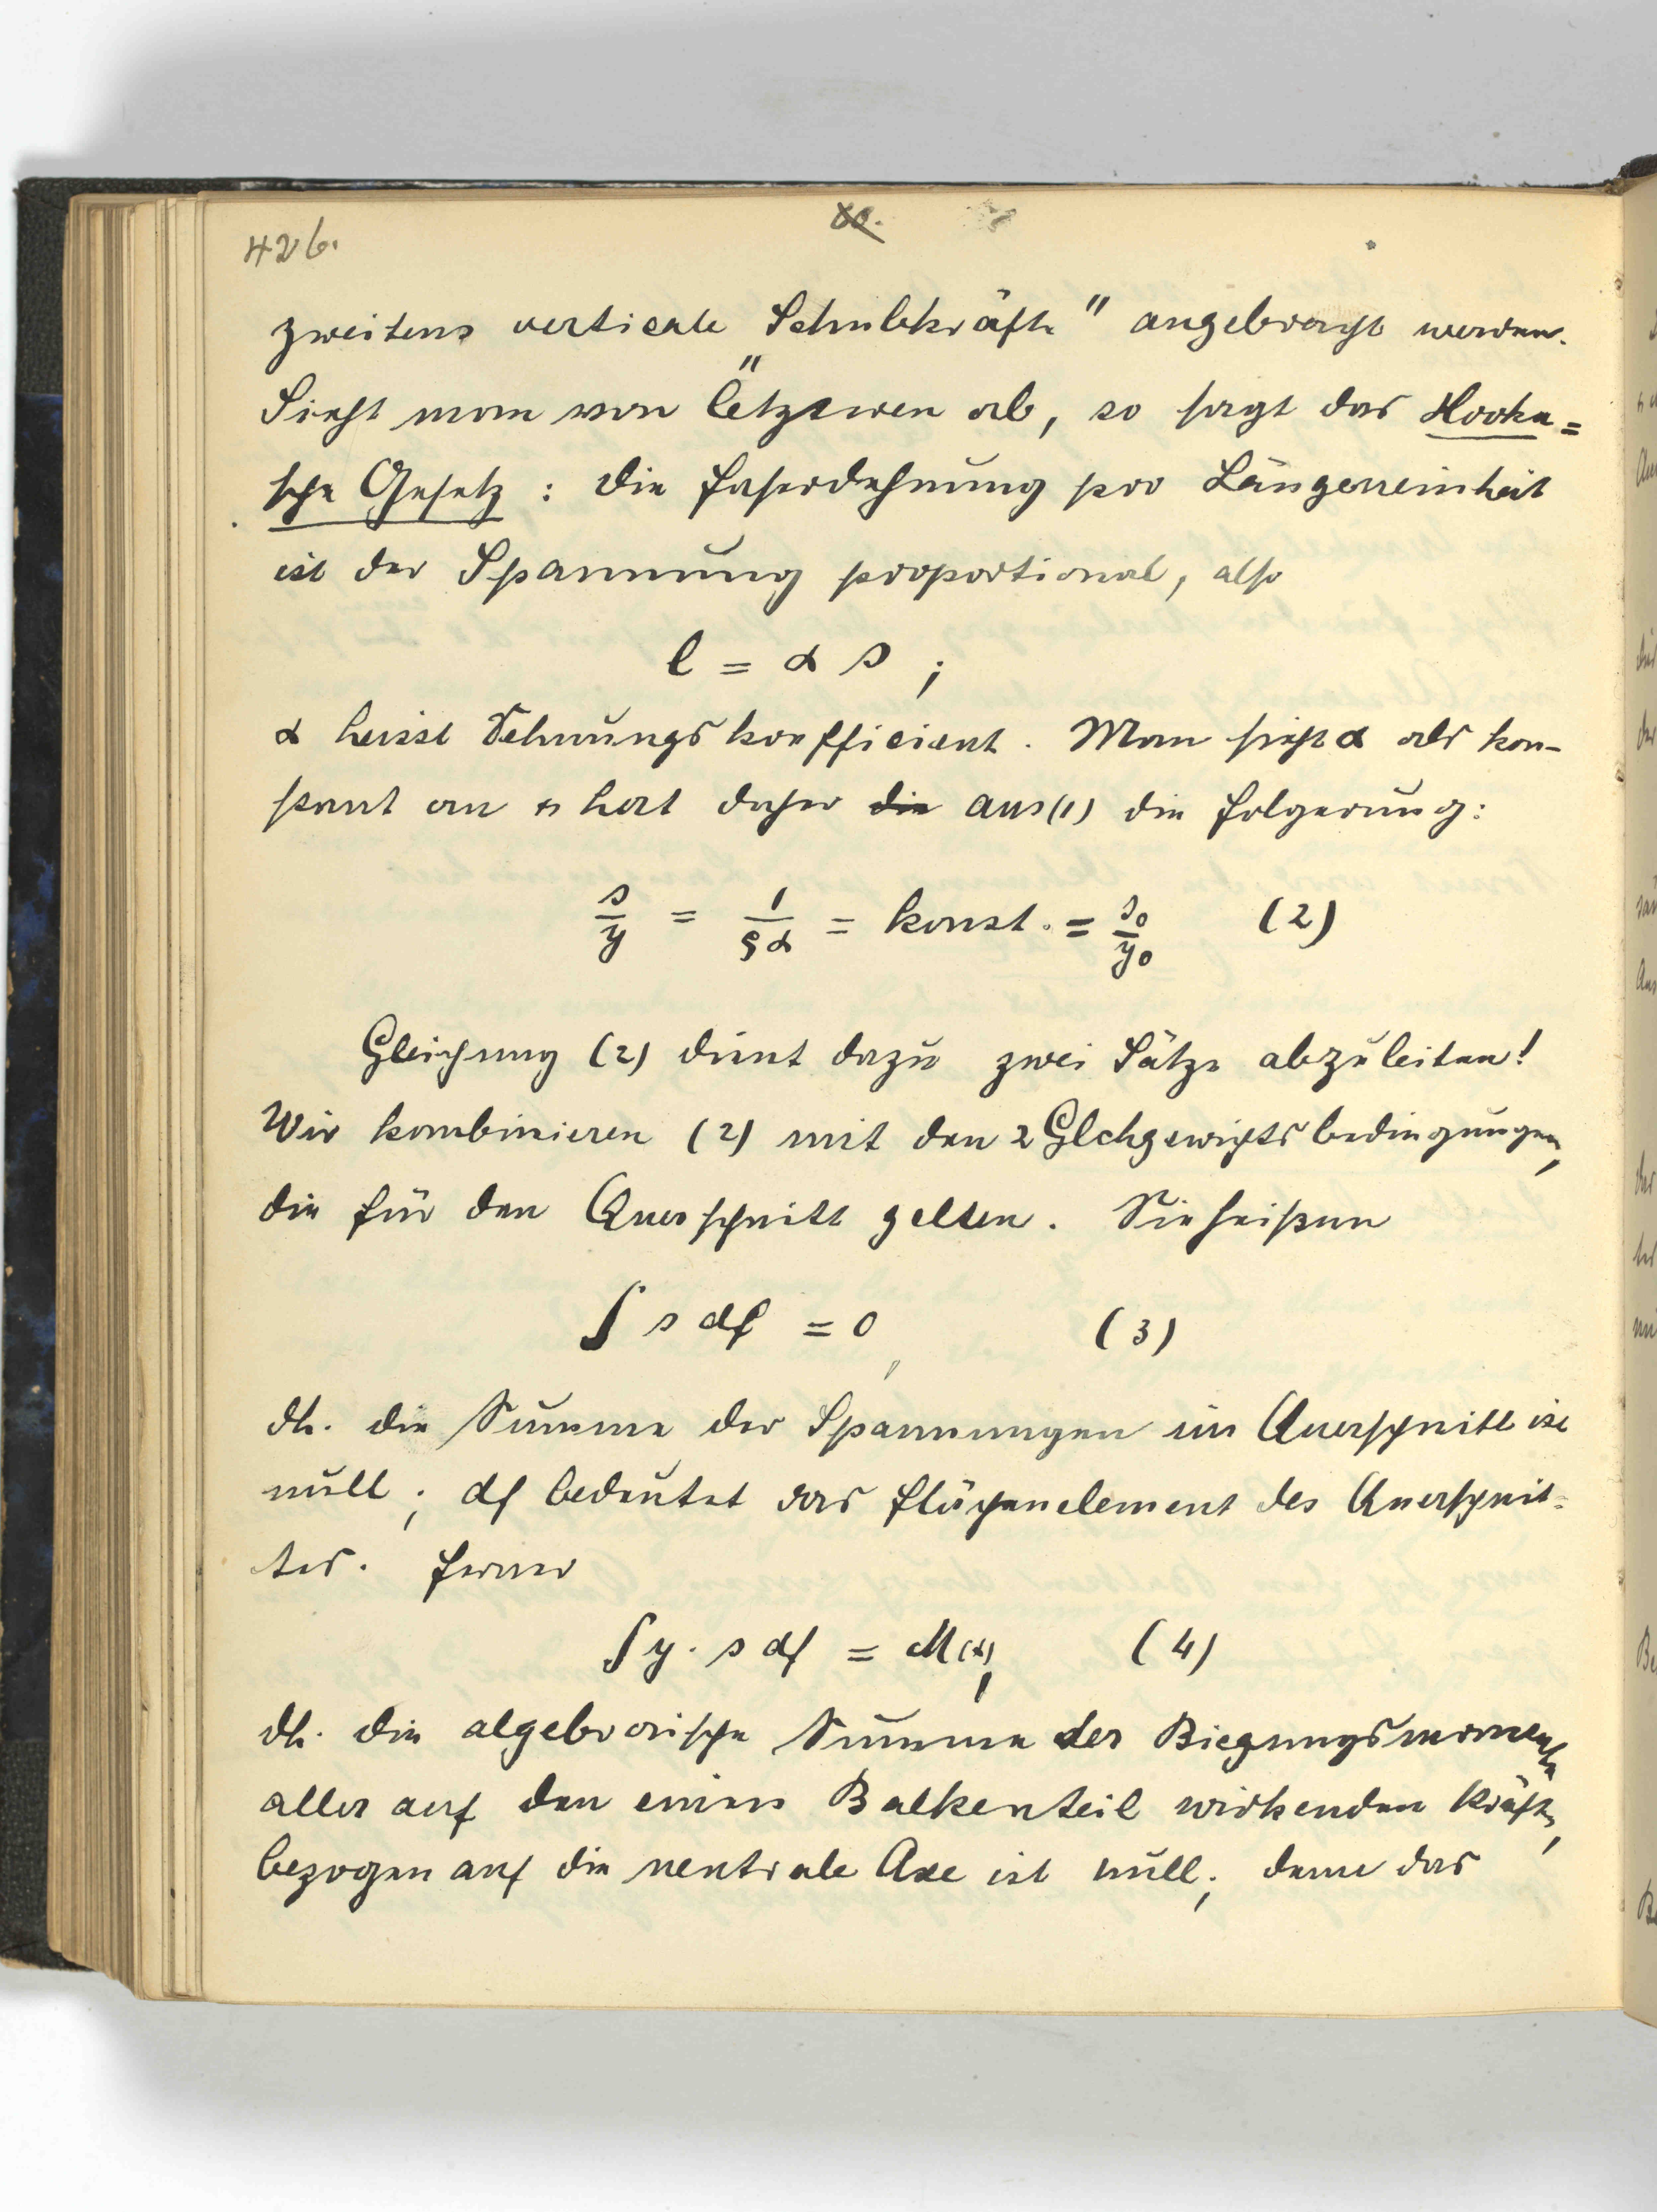 426.
80.
zweitens verticale "Schubkräfte" angebracht werden.
Sieht man von letzteren ab, so sagt das Hooke=
sche Gesetz: die Faserdehnung pro Längeneinheit
ist der Spannung proportional, also
l = α s ;
α heisst Dehnungskoefficient. Man sieht α als kon-
stant an u hat daher die aus (1) die Folgerung:
s/y = 1/ϱα = konst. = s₀/y₀ (2)
Gleichung (2) dient dazu zwei Sätze abzuleiten!
Wir kombinieren (2) mit den 2 Glchgewichtsbedingungen,
die für den Querschnitt gelten. Sie heißen
∫ s df = 0, (3)
dh. die Summe der Spannungen im Querschnitt ist
null; df bedeutet das Flächenelement des Querschnit-
tes. Ferner
∫ y. s df = M(x), (4)
dh. die algebraische Summe der Biegungsmomente
aller auf den einen Balkenteil wirkenden Kräfte,
bezogen auf die neutrale Axe ist null; denn das